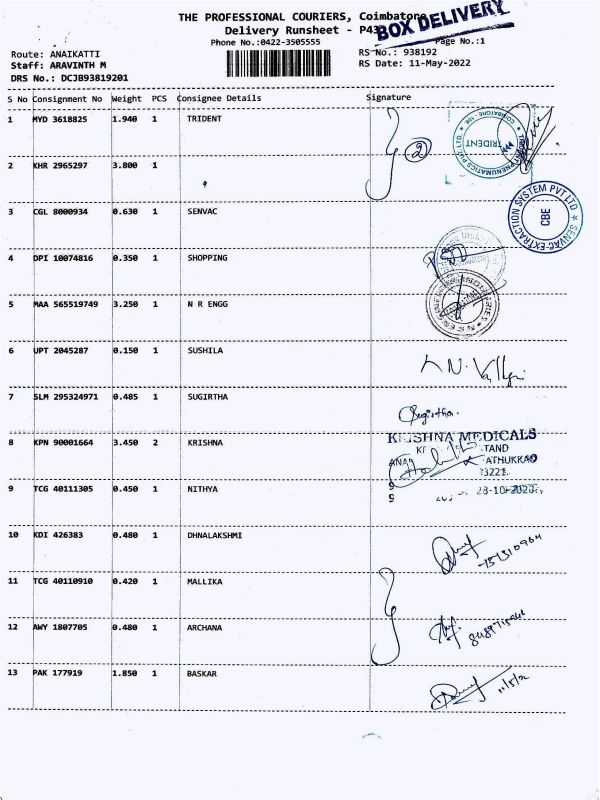 THE PROFESSIONAL COURIERS, Coimbatore
BOX DELIVERY
Delivery Runsheet - P43
Phone No.:0422-3505555
Page No.:1
Route: ANAIKATTI
RS No.: 938192
Staff: ARAVINTH M
RS Date: 11-May-2022
DRS No.: DCJB93819201
S No Consignment No Weight PCS Consignee Details Signature
1 MYD 3618825 1.940 1 TRIDENT
2 KHR 2965297 3.800 1
2
3 CGL 8000934 0.630 1 SENVAC
SENVAC EXTRACTION SYSTEM PVT LTD
CBE
4 DPI 10074816 0.350 1 SHOPPING
5 MAA 565519749 3.250 1 N R ENGG
6 UPT 2045287 0.150 1 SUSHILA
7 SLM 295324971 0.485 1 SUGIRTHA
Sugirtha.
8 KPN 90001664 3.450 2 KRISHNA
KRISHNA MEDICALS
9 TCG 40111305 0.450 1 NITHYA
10 KDI 426383 0.480 1 DHNALAKSHMI
11 TCG 40110910 0.420 1 MALLIKA
12 AWY 1807705 0.480 1 ARCHANA
13 PAK 177919 1.850 1 BASKAR
11/5/22